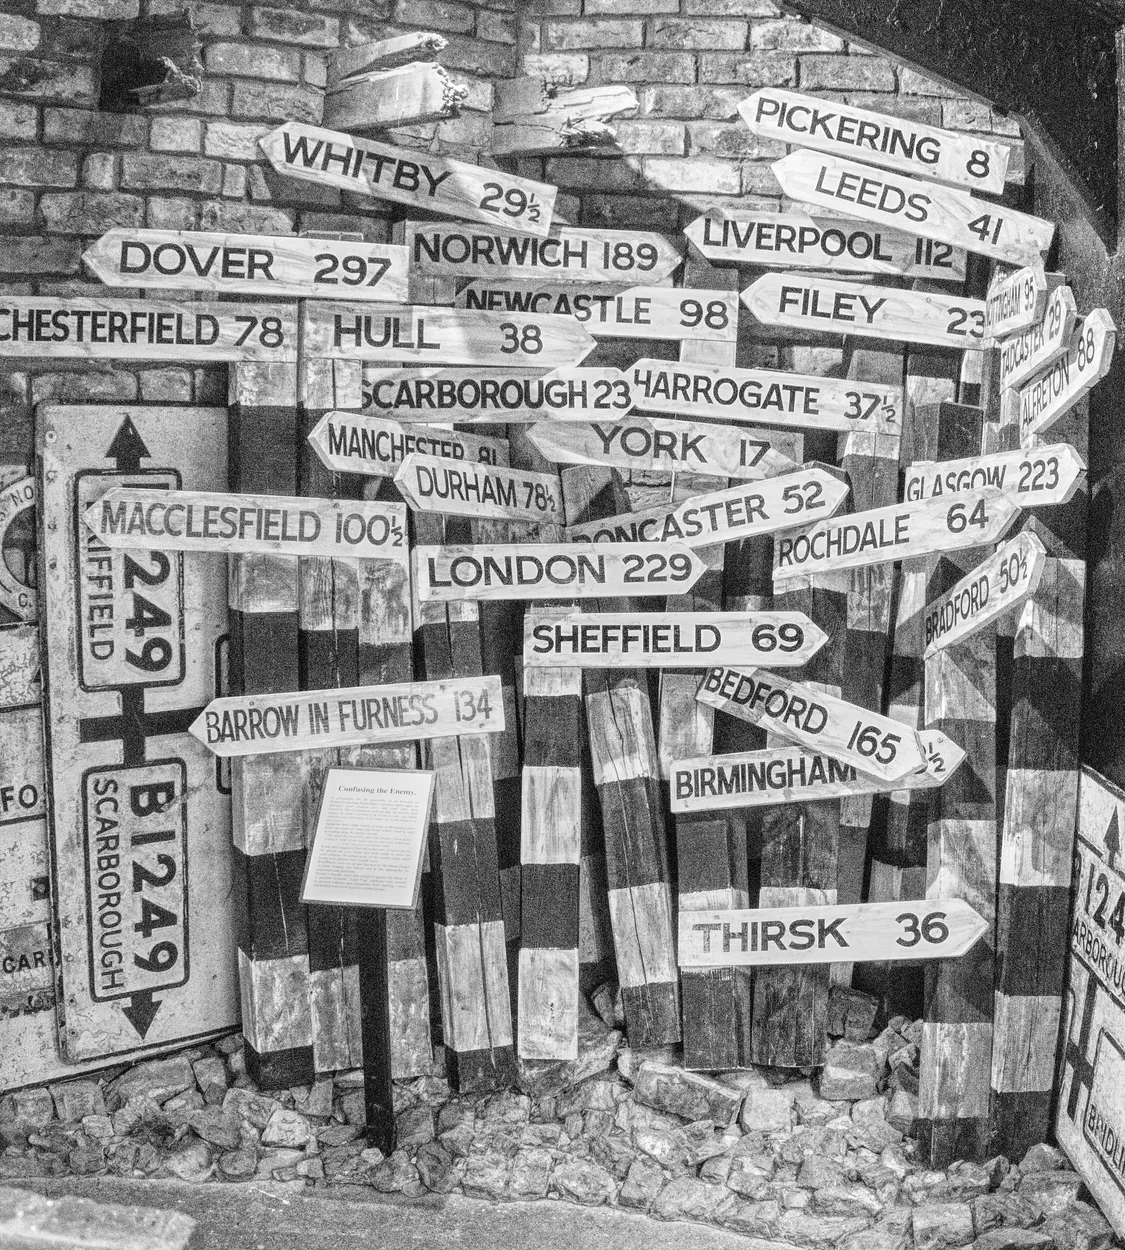 PICKERING 8
WHITBY 29½
LEEDS 41
DOVER 297
NORWICH 189
LIVERPOOL 112
NEWCASTLE 98
FILEY 23
95
CHESTERFIELD 78
HULL 38
TADCASTER 29
ALFRETON 88
SCARBOROUGH 23
HARROGATE 37½
MANCHESTER 81
YORK 17
DURHAM 78½
GLASGOW 223
MACCLESFIELD 100½
DONCASTER 52
ROCHDALE 64
LONDON 229
BRADFORD 50½
SHEFFIELD 69
BEDFORD 165
BARROW IN FURNESS 134
BIRMINGHAM ½
THIRSK 36
Confusing the Enemy.
249
RIFFIELD
B1249
SCARBOROUGH
NO
C.
FO
CAR
124
ARBOROUG
BRIDLI